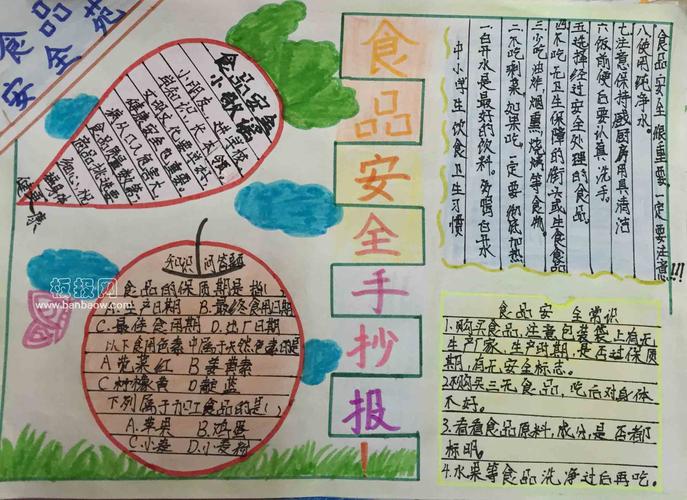 食品
安全苑
食品安全
小歌谣
食品安全手抄报！
中小学生饮食卫生习惯
一白开水是最好的饮料。多喝白开水
二不吃剩菜。如果吃,一定要彻底加热
三少吃油炸、烟熏、烧烤等食物。
四不吃无卫生保障的街头或生食食品
五选择经过安全处理的食品
六饭前便后要认真洗手。
七注意保持厨房用具清洁
八使用纯净水。
食品安全很重要,一定要注意!!!
知识问答题
食品的保质期是指( )
生产日期 B.最终食用日期
C.最佳食用期 D.出厂日期
以下食用色素中属于天然色素的是
A 苋菜红 B 姜黄素
C 柠檬黄 D 靛蓝
下列属于加工食品的是( )
A.苹果 B.鸡蛋
C.小麦 D.小麦粉
食品安全常识
1.购买食品,注意包装袋上有无
生产厂家、生产日期,是否过保质
期,有无安全标志。
2不购买三无食品,吃后对身体
不好。
3.看看食品原料,成分,是否都
标明。
4.水果等食品洗净过后再吃。
板报网
www.banbaow.com